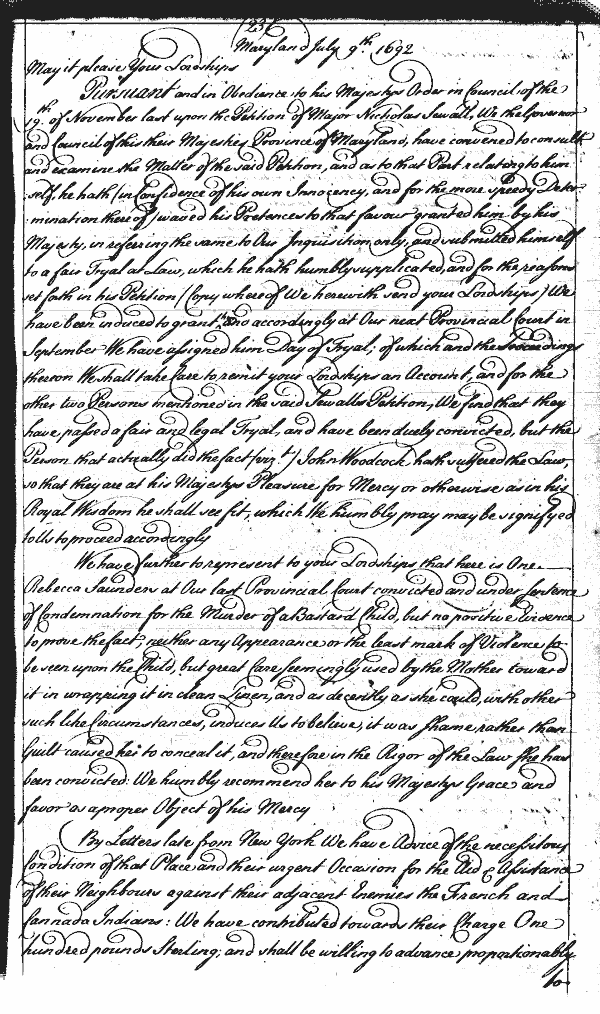 (236)
Maryland July 9th 1692
May it please Your Lordships
Pursuant and in Obedience to his Majestys Order in Council of the
19th of November last upon the Petition of Major Nicholas Sewall, We the Governor
and Council of this their Majestys Province of Maryland, have convened to consult
and examine the Matter of the said Petition, and as to that Part relating to him
self, he hath (in Confidence of his own Innocency, and for the more speedy Deter
mination thereof) waved his Pretences to that favour granted him by his
Majesty, in referring the same to Our Inquisition only, and submitted himself
to a fair Tryal at Law, which he hath humbly supplicated, and for the reasons
set forth in his Petition (Copy whereof We herewith send your Lordships) We
have been induced to grant, and accordingly at Our next Provincial Court in
September We have assigned him Day of Tryal; of which and the Proceedings
thereon We shall take Care to remit your Lordships an Account, and for the
other two Persons mentioned in the said Sewalls Petition, We find that they
have passed a fair and legal Tryal, and have been duely convicted, but the
Person that actually did the fact (vizt) John Woodcock hath suffered the Law,
so that they are at his Majestys Pleasure for Mercy or otherwise as in his
Royal Wisdom he shall see fit, which We humbly pray may be signifyed
to Us to proceed accordingly
We have further to represent to your Lordships that here is One
Rebecca Saunders at Our last Provincial Court convicted and under Sentence
of Condemnation for the Murder of a Bastard Child, but no positive Evidence
to prove the fact; neither any Appearance or the least mark of Violence to
be seen upon the Child, but great Care seemingly used by the Mother toward
it in wrapping it in clean Linen, and as decently as she could, with other
such like Circumstances, induces Us to believe, it was shame rather than
Guilt caused her to conceal it, and therefore in the Rigor of the Law she has
been convicted: We humbly recommend her to his Majestys Grace and
favor as a proper Object of his Mercy
By Letters late from New York We have Advice of the necessitous
Condition of that Place and their urgent Occasion for the Aid & Assistance
of their Neighbours against their adjacent Enemies the French and
Cannada Indians: We have contributed towards their Charge One
hundred pounds Sterling; and shall be willing to advance proportionably
to